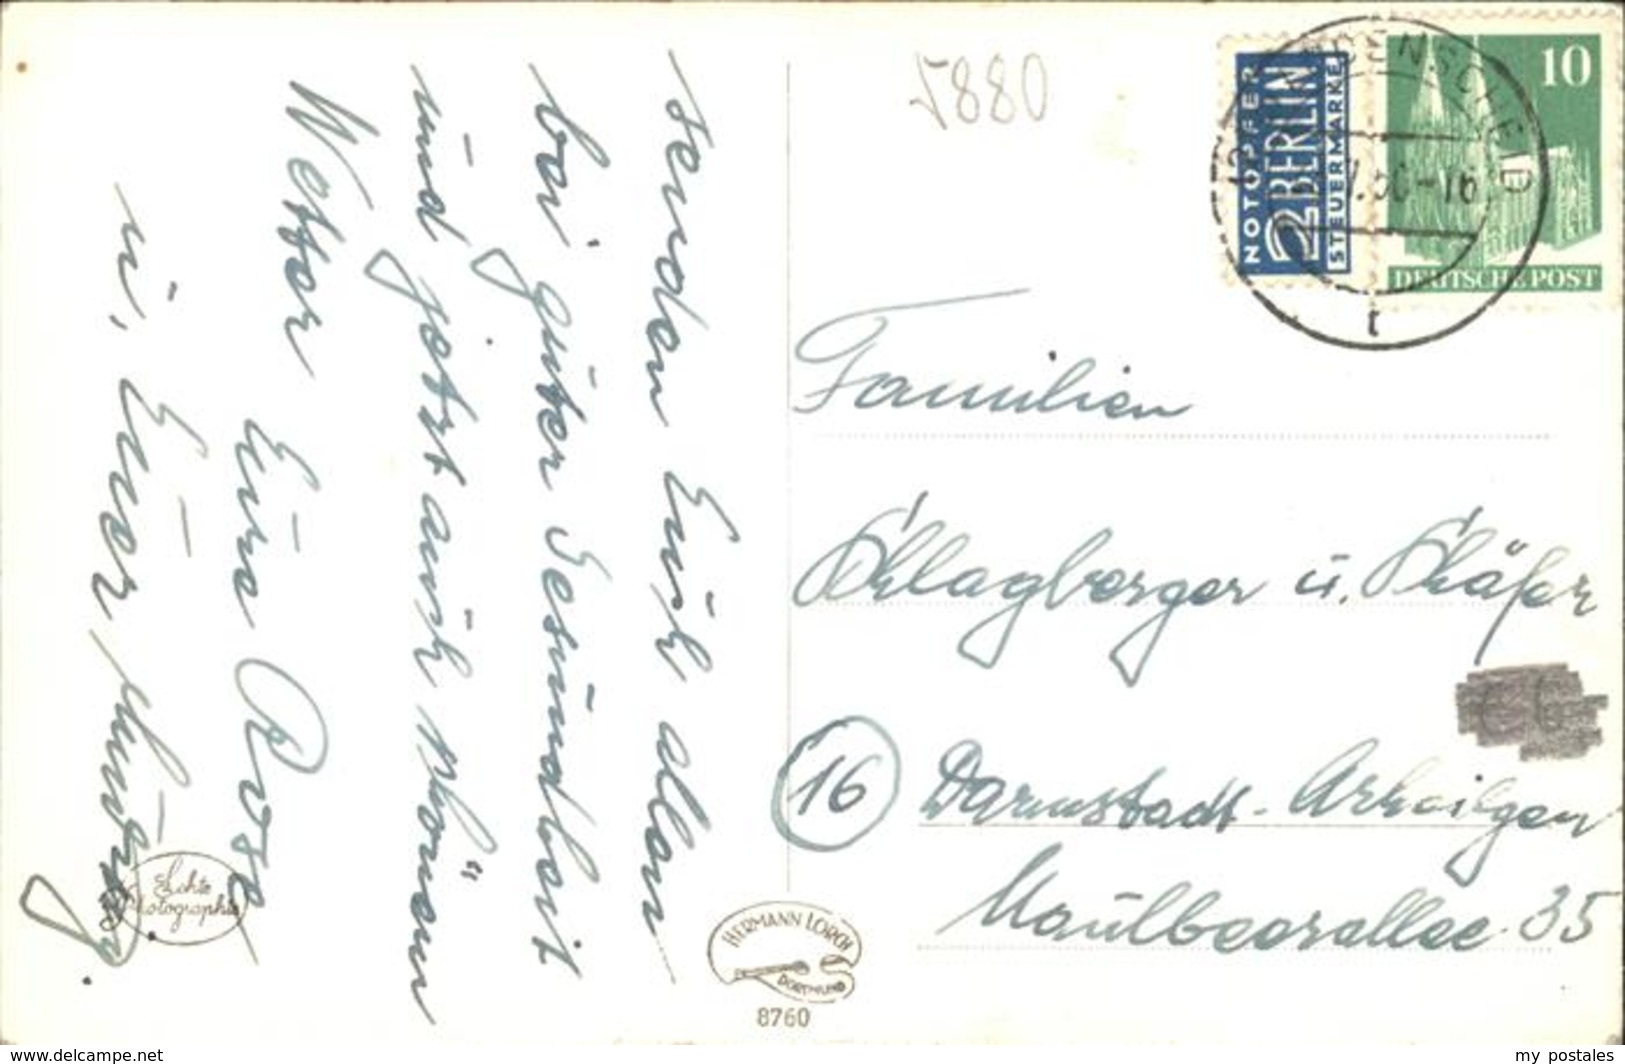 senden Euch allen
bei guter Gesundheit
und jetzt auch schönem
Wetter Eure Rosa
u. Euer
Echte
Photographie
HERMANN LORCH
DORTMUND
8760
5880
NOTOPFER
2 BERLIN
STEUERMARKE
10
DEUTSCHE POST
.50-16
t
Familien
Schlagberger u. Schäfer
16 Darmstadt-Arheilgen
Maulbeerallee 35
www.delcampe.net
my postales